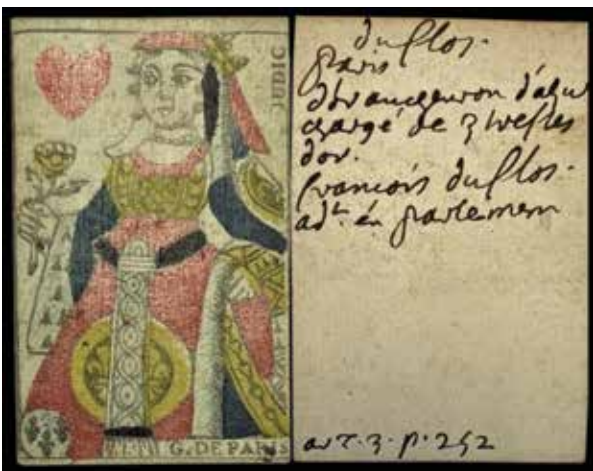 JUDIC
G. DE PARIS
du flos.
paris
d'or au cheuron d'azur
chargé de 3 trefles
d'or.
francois du flos.
adt. en parlement
ar T. 3. p. 252